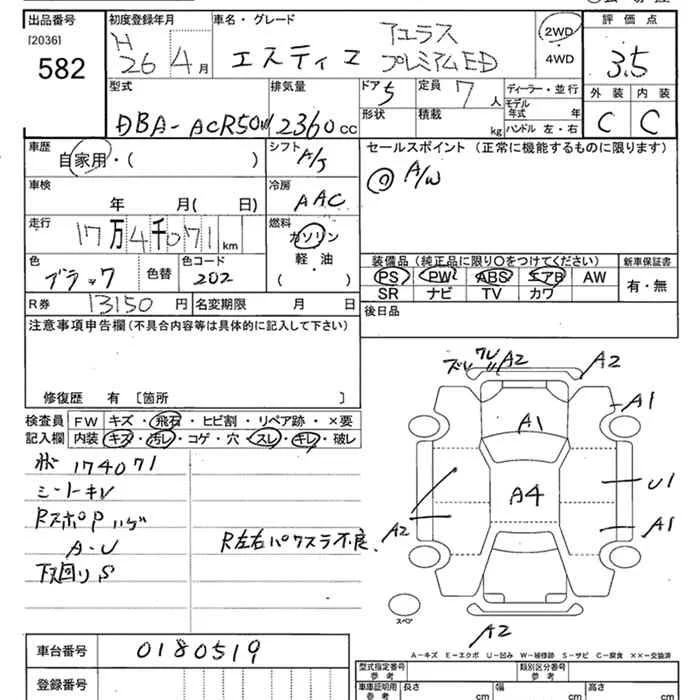 出品番号 初度登録年月 車名・グレード 評価点
[2036] H 26年 4月 エスティマ アエラス プレミアムED 2WD 4WD 3.5
582
型式 排気量 ドア 5 定員 7人 ディーラー・並行 外装 内装
DBA-ACR50W 2360cc 形状 積載 kg モデル年式 年 ハンドル 左・右 C C
車歴 自家用・( ) シフト A/T セールスポイント (正常に機能するものに限ります)
車検 年 月( 日) 冷房 AAC A/W
走行 17万4千071km 燃料 ガソリン・軽油( )
色 ブラック 色替 色コード 202 装備品 (純正品に限り○をつけてください) 新車保証書
PS PW ABS エアB AW 有・無
SR ナビ TV カワ
R券 13150円 名変期限 月 日 後日品
注意事項申告欄(不具合内容等は具体的に記入して下さい)
修復歴 有 [箇所 ]
検査員記入欄 FW キズ・飛石・ヒビ割・リペア跡・×要
内装 キズ・汚レ・コゲ・穴・スレ・キレ・破レ
174071
シートキレ
RスポP ハゲ
A-U R左右パワスラ不良
下回りS
ズレ ワレ A2 A2
A1 A1
A4 U1
A2 A1
スペア A2
A-キズ E-エクボ U-凹み W-補修跡 S-サビ C-腐食 ××-交換済
車台番号 0180519
登録番号
型式指定番号 参考 類別区分番号 参考
車庫証明用 参考 長さ cm 幅 cm 高さ cm